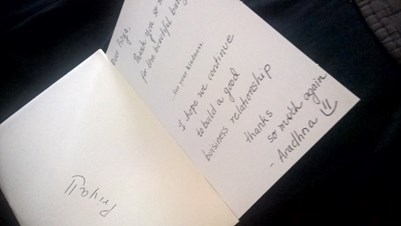 Thank you so
for the beautiful
for your kindness
I hope we continue
to build a good
business relationship
thanks
so much again
- Aradhna
Priya!!